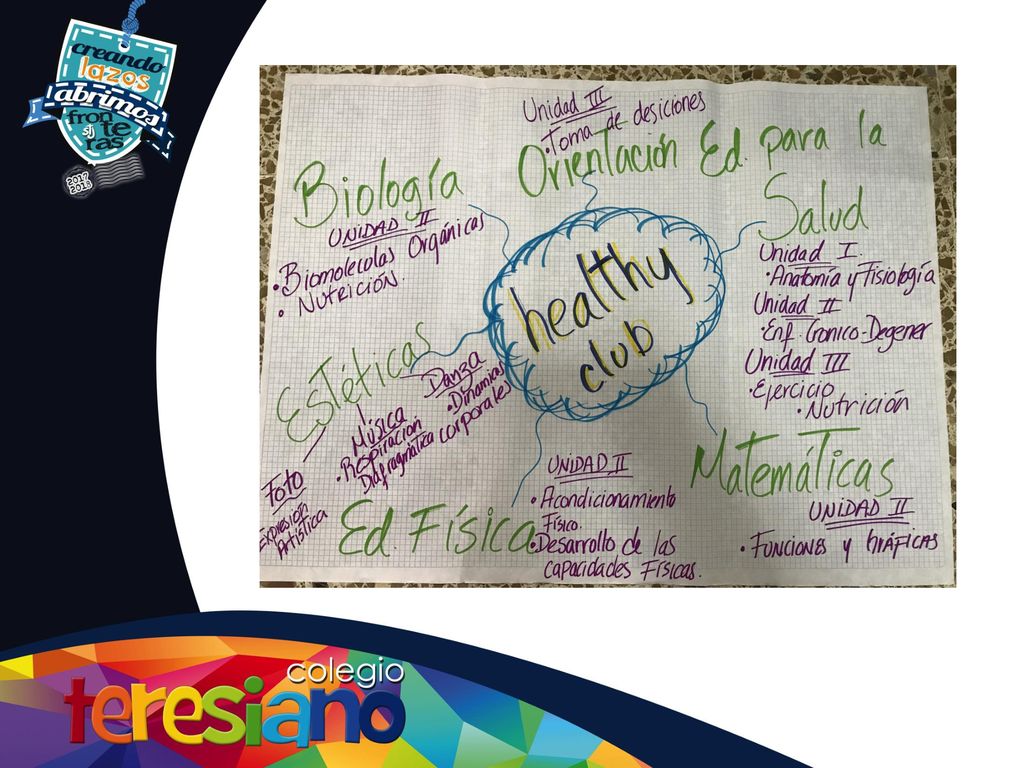 creando
lazos
abrimos
fron
stj
te
ras
2017
2018
Unidad III
• Toma de desiciones
Orientación
Ed. para la
Salud
Unidad I.
• Anatomía y Fisiología
Unidad II
• Enf. Cronico-Degener
Unidad III
• Ejercicio
• Nutrición
Biología
UNIDAD II
• Biomoleculas Orgánicas
• NUTRICIÓN
healthy
club
Estéticas
Danza
• Dinamicas
corporales
Música
• Respiración
Diafragmática
Foto
Expresión
Artística
Ed. Física
UNIDAD II
• Acondicionamiento
Físico.
• Desarrollo de las
capacidades Físicas.
Matemáticas
UNIDAD II
• FUNCIONES y GRÁFICAS
colegio
teresiano